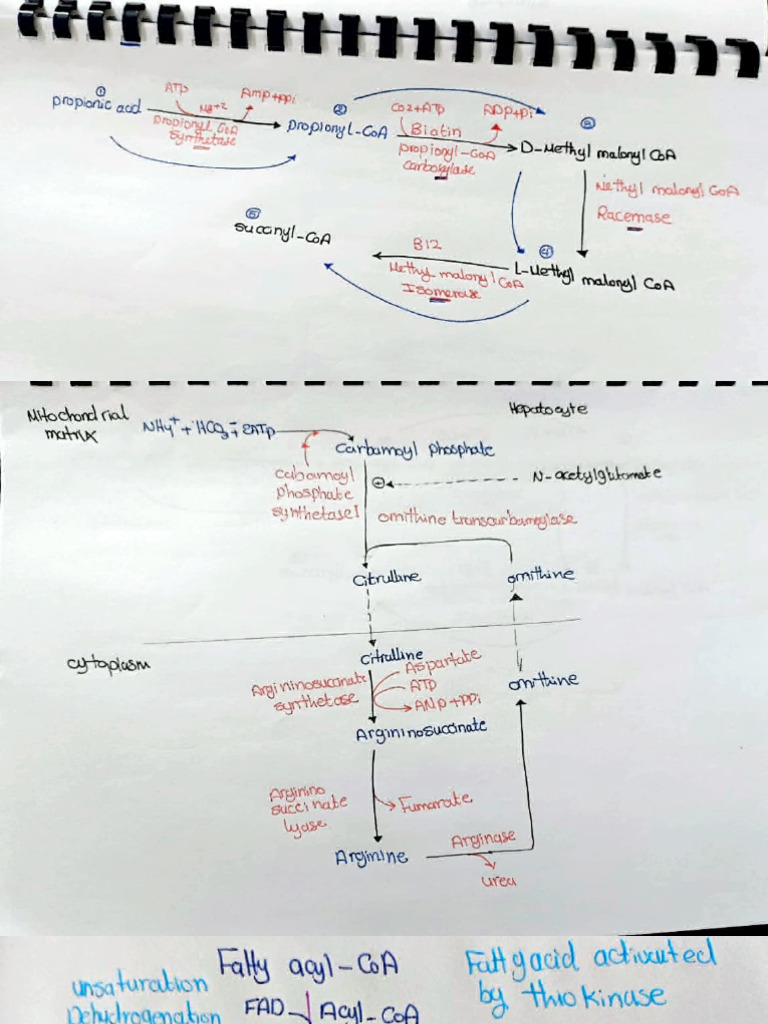 ①
propionic acid
ATP
Mg+2
Amp+ppi
propionyl CoA
synthetase
②
propionyl-CoA
CO2+ATP
ADP+Pi
Biotin
propionyl-CoA
carboxylase
③
D-Methyl malonyl CoA
Methyl malonyl CoA
Racemase
④
L-Methyl malonyl CoA
B12
Methyl malonyl CoA
Isomerase
⑤
succinyl-CoA
Mitochondrial
matrix
Hepatocyte
NH4+ + HCO3- + 2ATP
Carbamoyl phosphate
Cabamoyl
phosphate
synthetase I
⊕
N-acetylglutamate
ornithine transcarbamoylase
Citrulline
ornithine
cytoplasm
Citrulline
ornithine
Argininosuccinate
synthetase
Aspartate
ATP
AMP+PPi
Argininosuccinate
Arginino
succinate
lyase
Fumarate
Arginine
Arginase
urea
unsaturation
Dehydrogenation
Fatty acyl-CoA
FAD
Acyl-CoA
Fatty acid activated
by thiokinase